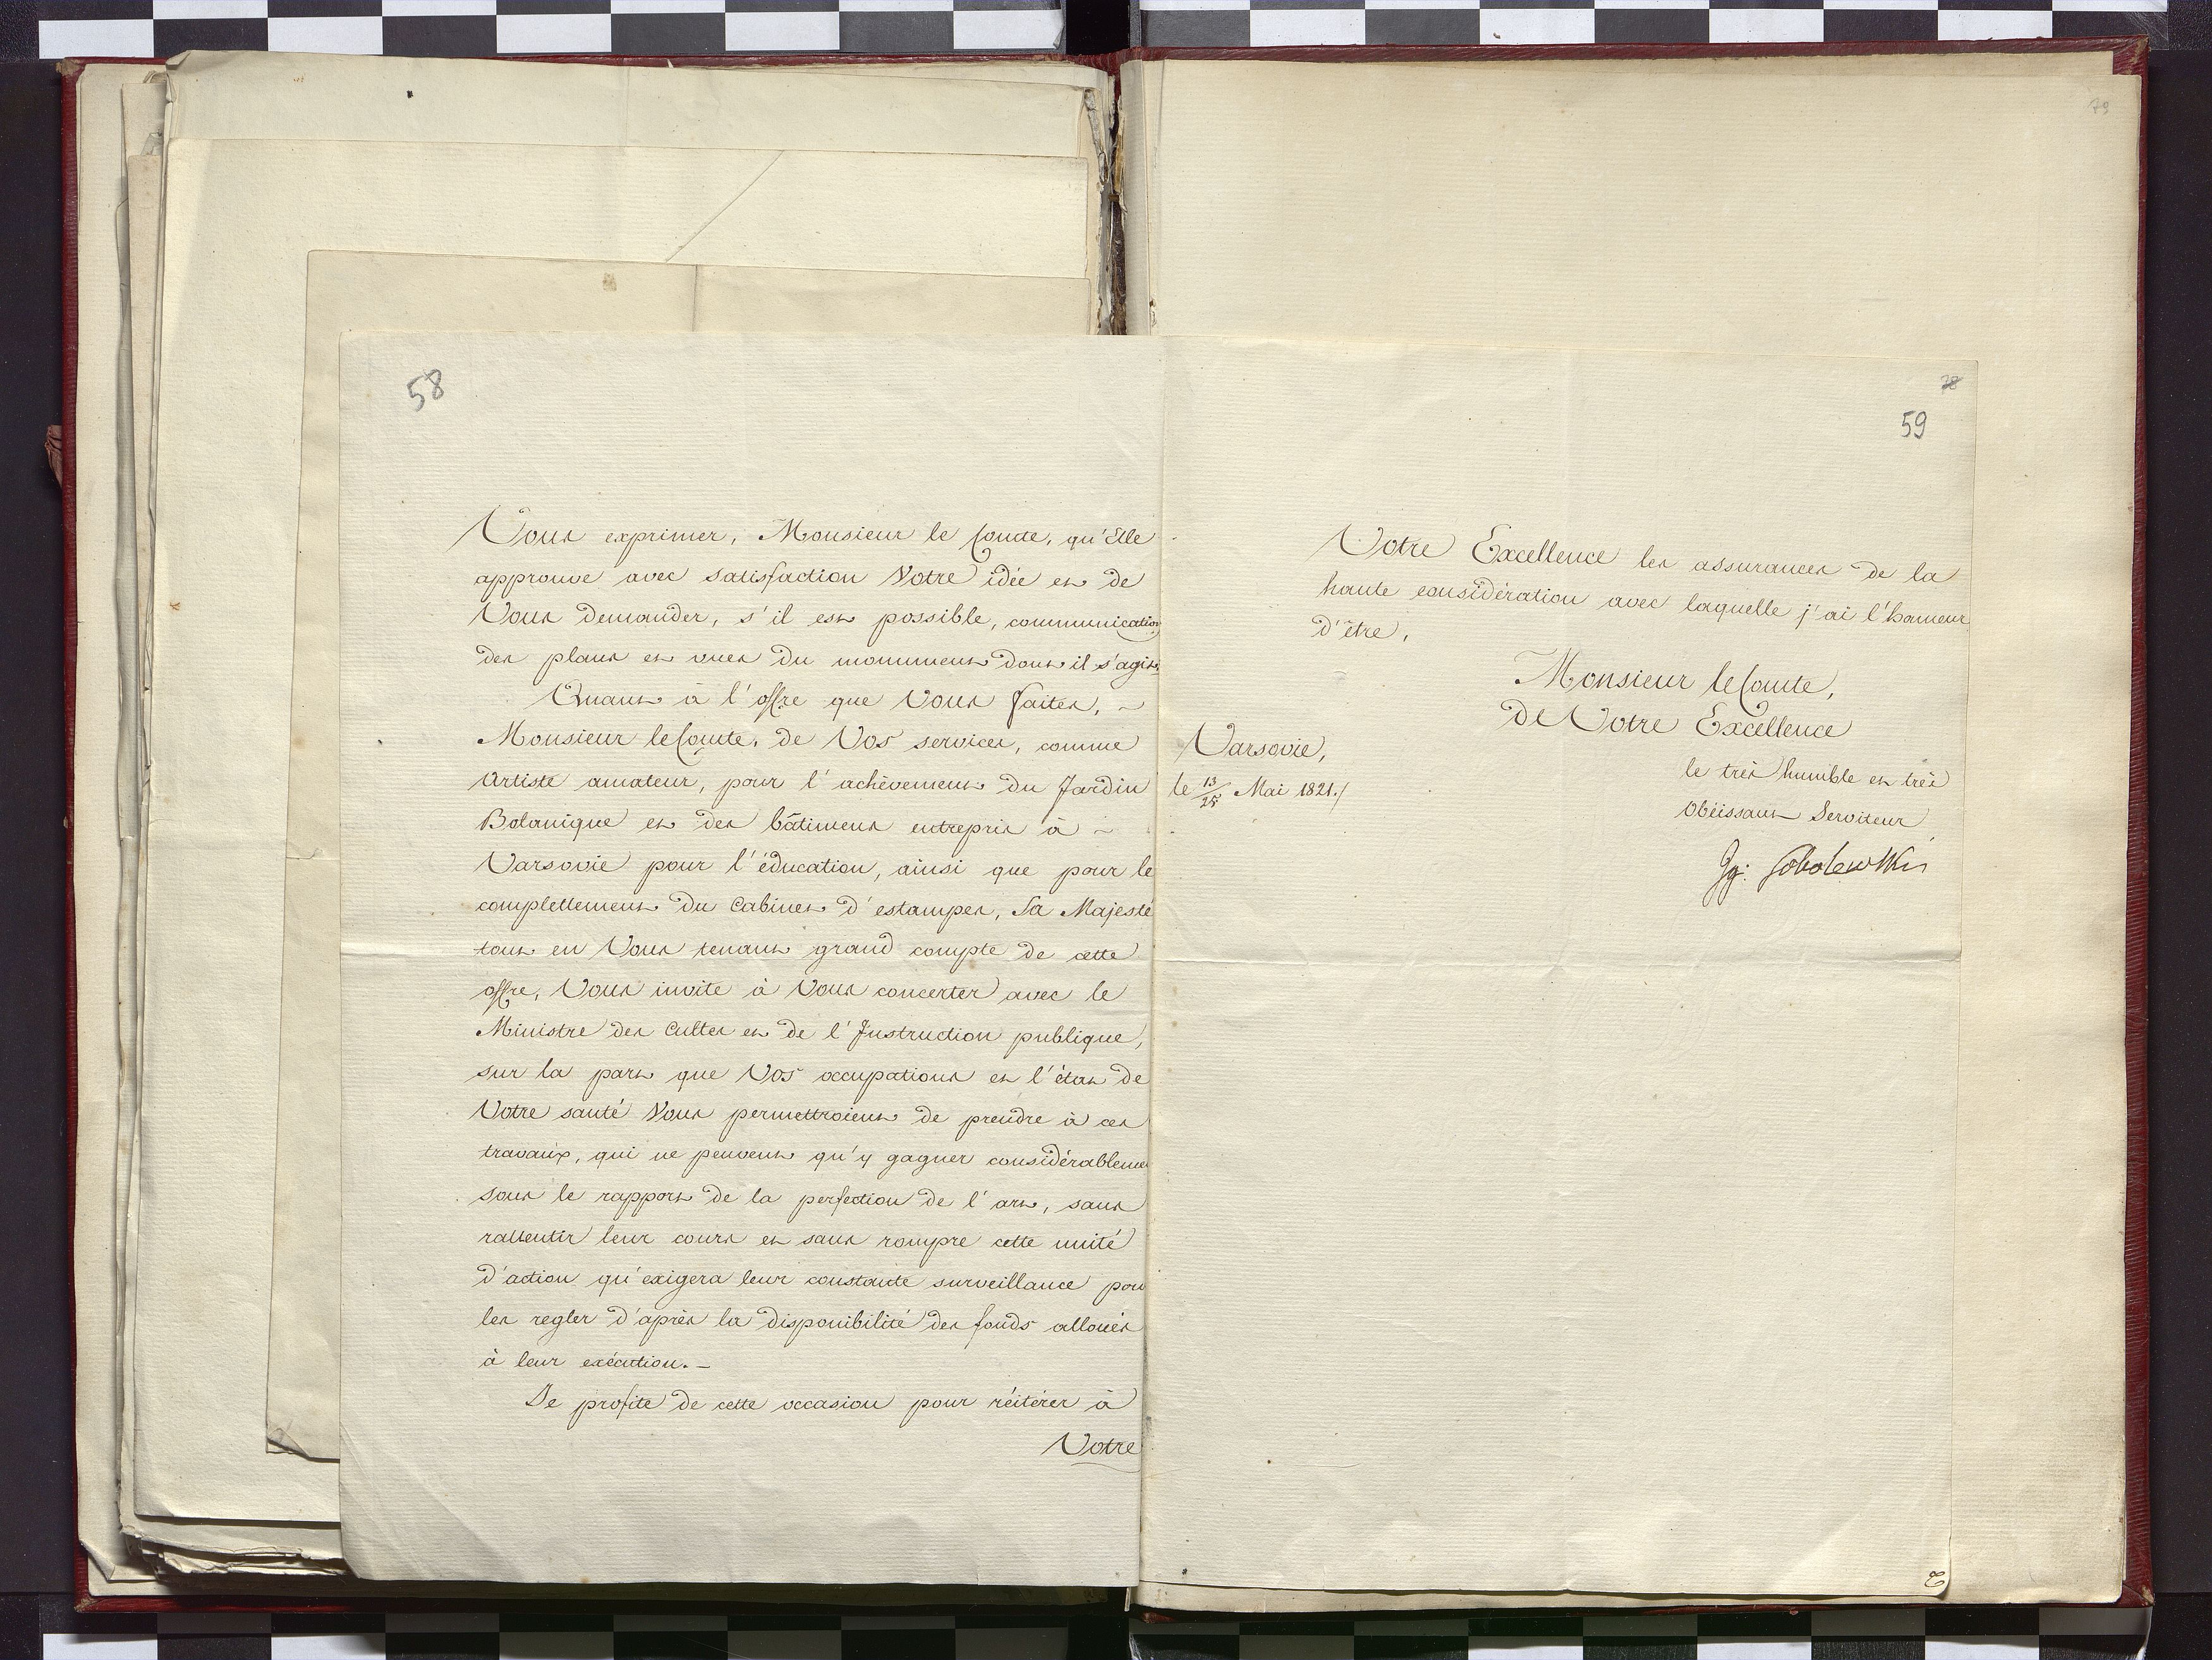 58
Vous exprimer, Monsieur le Comte, qu'Elle
approuve avec satisfaction Votre idée et de
Vous demander, s'il est possible, communication
des plans et vues du monument dont il s'agit.
Quant à l'offre que Vous faites, ~
Monsieur le Comte, de Vos services, comme
Artiste amateur, pour l'achèvement du Jardin
Botanique et des bâtimens entrepris à ~
Varsovie pour l'éducation, ainsi que pour le
complettement du Cabinet d'estampes, Sa Majesté
tout en Vous tenant grand compte de cette
offre, Vous invite à Vous concerter avec le
Ministre des Cultes et de l'Instruction publique,
sur la part que Vos occupations et l'état de
Votre santé Vous permettroient de prendre à ces
travaux, qui ne peuvent qu'y gagner considérableme
sous le rapport de la perfection de l'art, sans
rallentir leur cours et sans rompre cette unité
d'action qu'exigera leur constante surveillance pou
les regler d'après la disponibilité des fonds alloués
à leur exécution. _
Je profite de cette occasion pour réitérer à
Votre
79
78
59
Votre Excellence les assurances de la
haute considération avec laquelle j'ai l'honneur
d'être,
Monsieur le Comte,
de Votre Excellence
Varsovie,
le 13/25 Mai 1821./
le très humble et très
Obéissant Serviteur
Ig: Sobolewski